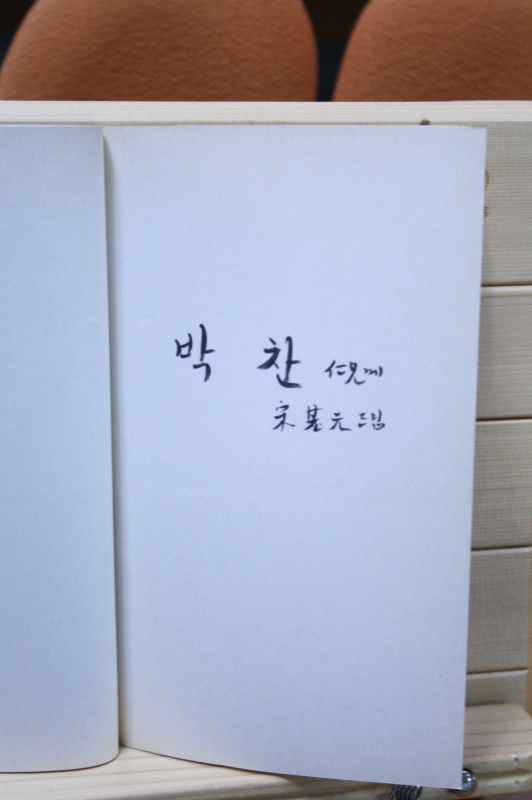 박 찬 仁兄께
宋基元 드림